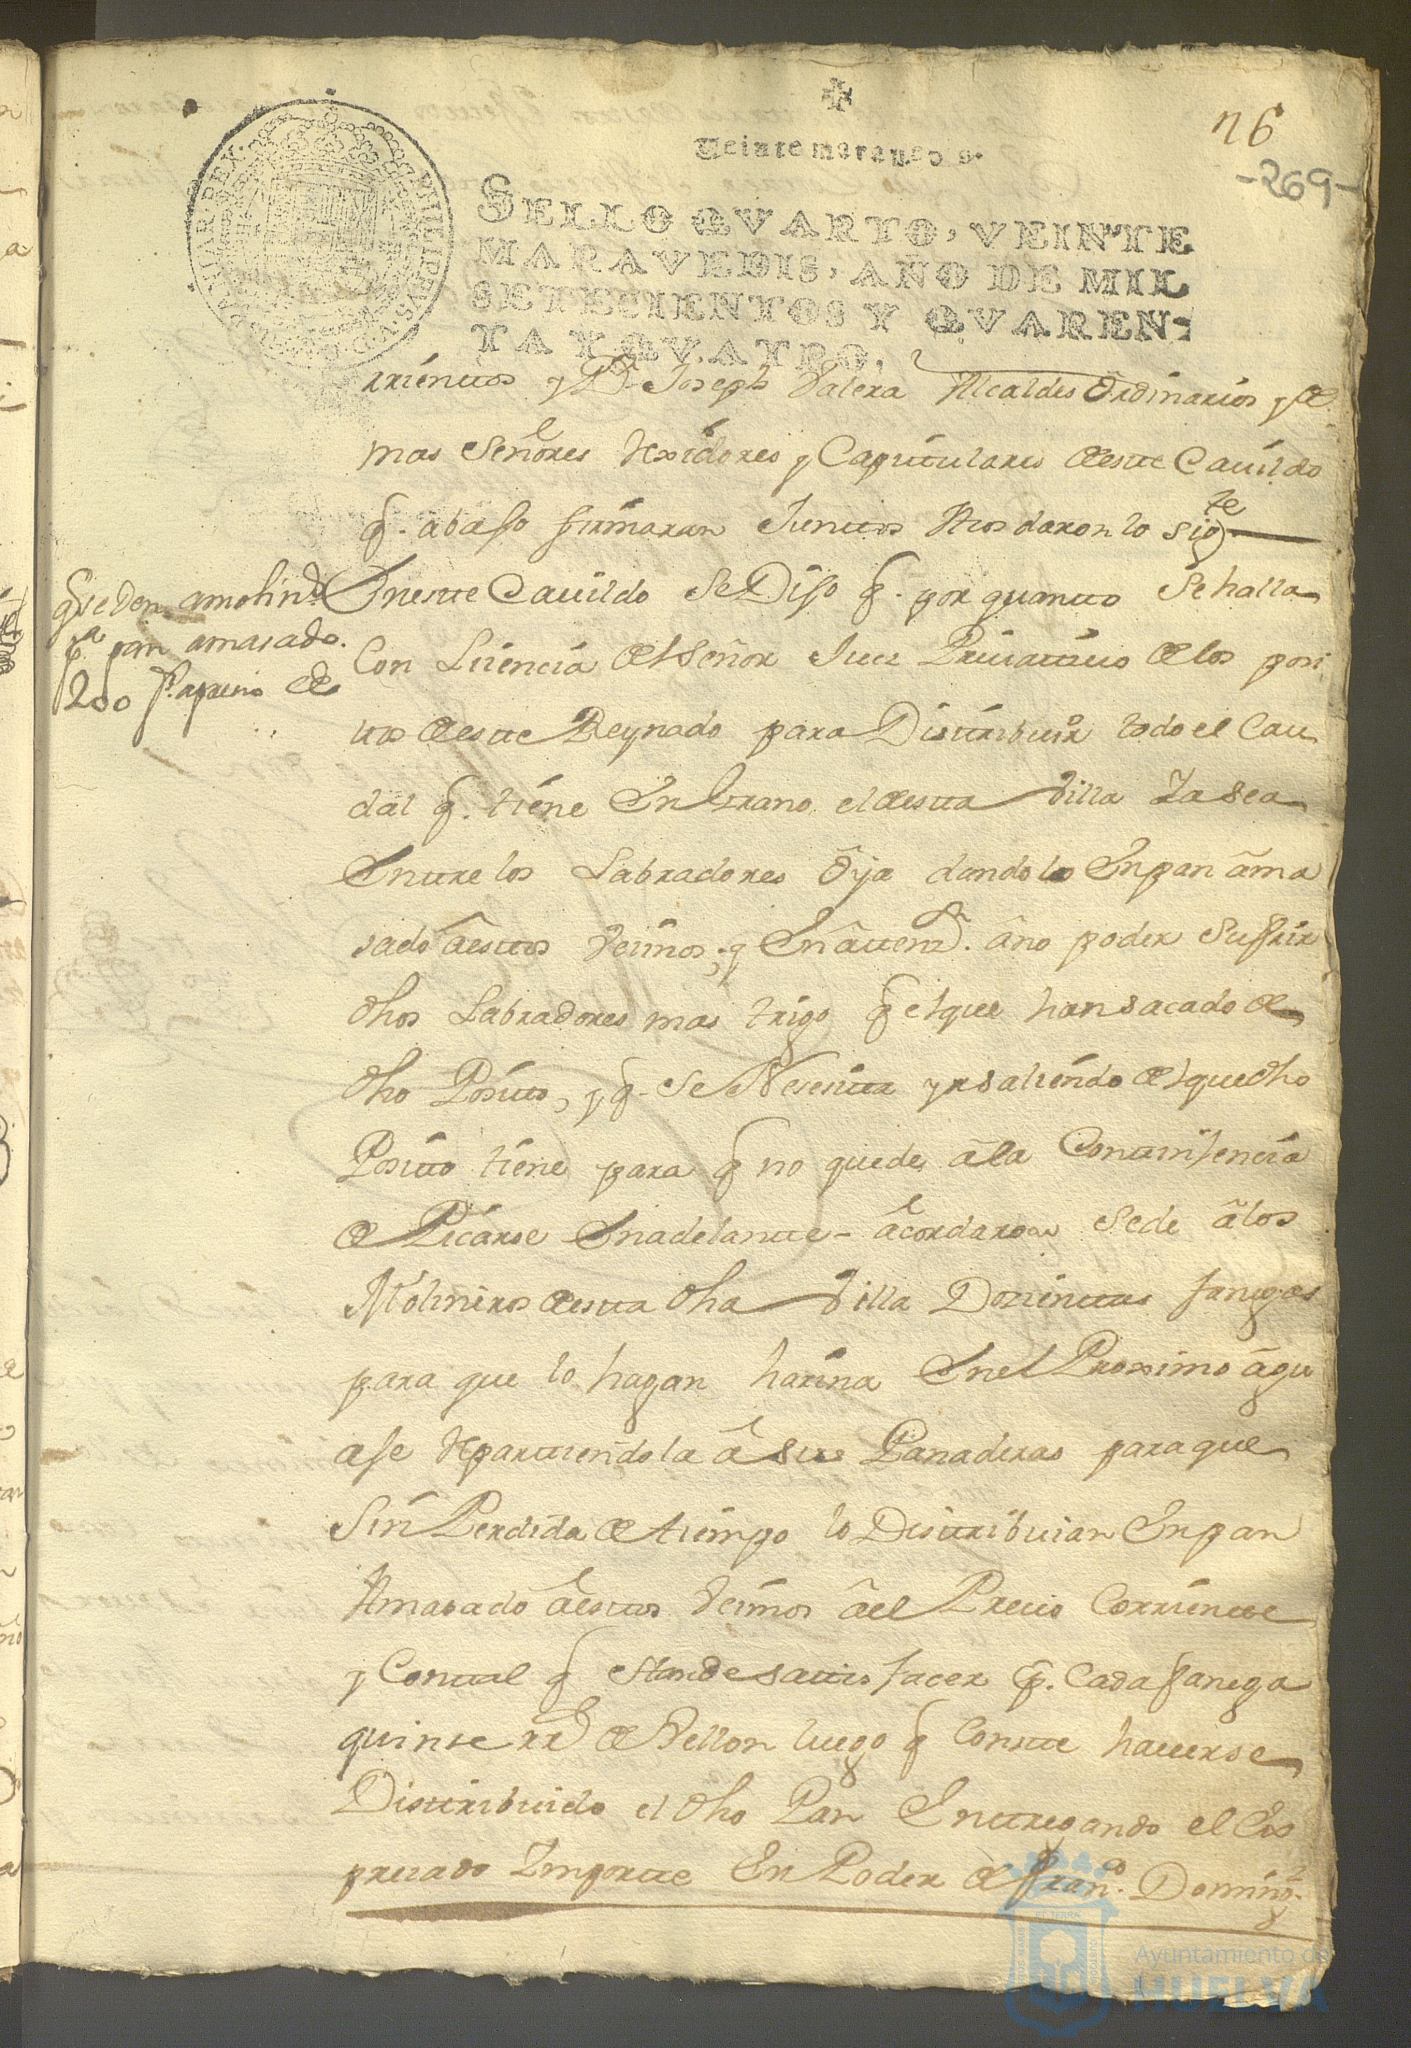 Veinte maravedis.
n6
-269-
SELLO QVARTO, VEINTE
MARAVEDIS, AÑO DE MIL
SETECIENTOS Y QVAREN-
TA Y QVATRO.
rrientos y Dn Joseph Valera Alcaldes Ordinarios y de
mas Señores Rexidores y Capitulares de este Cavildo
q. abajo firmaran Juntos Acordaron lo sigte
q se den amolindo
pa pan amasado
200 fs. a precio de
En este Cavildo Se Dijo q. por quanto Se halla
Con Lisencia del Señor Juez Privativo de los posi
tos de este Reynado para Distribuir todo el Cau
dal q. tiene En Grano el de esta Villa Ya sea
Entre los Labradores O ya dandolo En pan ama
sado a estos Vesinos; y En atenzn. a no poder Sufrir
dhos Labradores mas trigo q el que han sacado de
dho Posito, y q. Se Nesesita yr saliendo del que dho
Posito tiene para q no quede a la Continjencia
de Picarse En adelante - acordaron Se de a los
Molineros de esta dha Villa Dozientas fanegas
para que lo hagan harina En el Proximo agu
aje Repartiendola a sus Panaderas para que
Sin Perdida de tiempo lo Distribuian En pan
Amasado a estos Vesinos a el Precio Corriente
y Con tal q. Han de satisfacer p. Cada fanega
quinse rrs de Vellon luego q Conste haverse
Distribuido el dho Pan Entregando el Ex
presado Importe En Poder de Franco. Domingz.
Ayuntamiento de
HUELVA